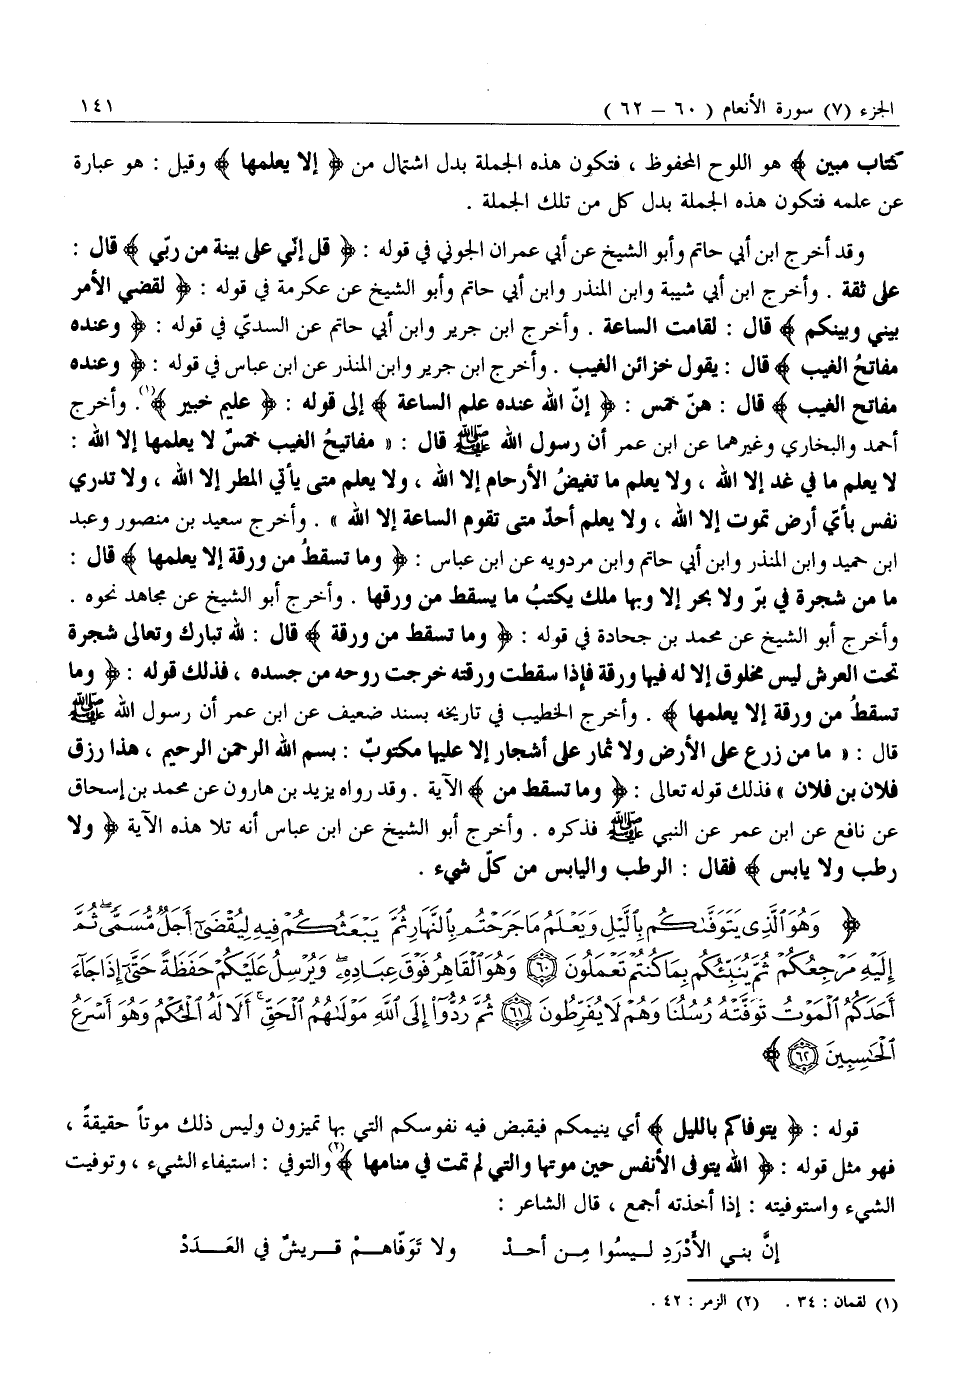 الجزء (٧) سورة الأنعام ( ٦٠ – ٦٢ ) ١٤١
كتاب مبين ﴾ هو اللوح المحفوظ ، فتكون هذه الجملة بدل اشتمال من ﴿ إلا يعلمها ﴾ وقيل : هو عبارة
عن علمه فتكون هذه الجملة بدل كل من تلك الجملة .
وقد أخرج ابن أبي حاتم وأبو الشيخ عن أبي عمران الجوني في قوله : ﴿ قل إنّي على بينة من ربّي ﴾ قال :
على ثقة . وأخرج ابن أبي شيبة وابن المنذر وابن أبي حاتم وأبو الشيخ عن عكرمة في قوله : ﴿ لقضي الأمر
بيني وبينكم ﴾ قال : لقامت الساعة . وأخرج ابن جرير وابن أبي حاتم عن السديّ في قوله : ﴿ وعنده
مفاتحُ الغيب ﴾ قال : يقول خزائن الغيب . وأخرج ابن جرير وابن المنذر عن ابن عباس في قوله : ﴿ وعنده
مفاتح الغيب ﴾ قال : هنّ خمس : ﴿ إنّ الله عنده علم الساعة ﴾ إلى قوله : ﴿ عليم خبير ﴾(١). وأخرج
أحمد والبخاري وغيرهما عن ابن عمر أن رسول الله ﷺ قال : « مفاتيحُ الغيب خمسٌ لا يعلمها إلا الله :
لا يعلم ما في غد إلا الله ، ولا يعلم ما تغيضُ الأرحام إلا الله ، ولا يعلم متى يأتي المطر إلا الله ، ولا تدري
نفس بأيّ أرض تموت إلا الله ، ولا يعلم أحدٌ متى تقوم الساعة إلا الله » . وأخرج سعيد بن منصور وعبد
ابن حميد وابن المنذر وابن أبي حاتم وابن مردويه عن ابن عباس : ﴿ وما تسقطُ من ورقة إلا يعلمها ﴾ قال :
ما من شجرة في برّ ولا بحر إلا وبها ملك يكتبُ ما يسقط من ورقها . وأخرج أبو الشيخ عن مجاهد نحوه .
وأخرج أبو الشيخ عن محمد بن جحادة في قوله : ﴿ وما تسقط من ورقة ﴾ قال : لله تبارك وتعالى شجرة
تحت العرش ليس مخلوق إلا له فيها ورقة فإذا سقطت ورقته خرجت روحه من جسده ، فذلك قوله : ﴿ وما
تسقطُ من ورقة إلا يعلمها ﴾ . وأخرج الخطيب في تاريخه بسند ضعيف عن ابن عمر أن رسول الله ﷺ
قال : « ما من زرع على الأرض ولا ثمار على أشجار إلا عليها مكتوبٌ : بسم الله الرحمن الرحيم ، هذا رزق
فلان بن فلان » فذلك قوله تعالى : ﴿ وما تسقط من ﴾ الآية . وقد رواه يزيد بن هارون عن محمد بن إسحاق
عن نافع عن ابن عمر عن النبي ﷺ فذكره . وأخرج أبو الشيخ عن ابن عباس أنه تلا هذه الآية ﴿ ولا
رطب ولا يابس ﴾ فقال : الرطب واليابس من كلّ شيء .
﴿ وَهُوَ ٱلَّذِى يَتَوَفَّىٰكُم بِٱلَّيْلِ وَيَعْلَمُ مَا جَرَحْتُم بِٱلنَّهَارِ ثُمَّ يَبْعَثُكُمْ فِيهِ لِيُقْضَىٰٓ أَجَلٌ مُّسَمًّى ۖ ثُمَّ
إِلَيْهِ مَرْجِعُكُمْ ثُمَّ يُنَبِّئُكُم بِمَا كُنتُمْ تَعْمَلُونَ ٦٠ وَهُوَ ٱلْقَاهِرُ فَوْقَ عِبَادِهِۦ ۖ وَيُرْسِلُ عَلَيْكُمْ حَفَظَةً حَتَّىٰٓ إِذَا جَآءَ
أَحَدَكُمُ ٱلْمَوْتُ تَوَفَّتْهُ رُسُلُنَا وَهُمْ لَا يُفَرِّطُونَ ٦١ ثُمَّ رُدُّوٓا۟ إِلَى ٱللَّهِ مَوْلَىٰهُمُ ٱلْحَقِّ ۚ أَلَا لَهُ ٱلْحُكْمُ وَهُوَ أَسْرَعُ
ٱلْحَـٰسِبِينَ ٦٢ ﴾
قوله : ﴿ يتوفاكم بالليل ﴾ أي ينيمكم فيقبض فيه نفوسكم التي بها تميزون وليس ذلك موتاً حقيقةً ،
فهو مثل قوله : ﴿ الله يتوفى الأنفس حين موتها والتي لم تمت في منامها ﴾(٢) والتوفي : استيفاء الشيء ، وتوفيت
الشيء واستوفيته : إذا أخذته أجمع ، قال الشاعر :
إنَّ بني الأَدْرَدِ لـيسُوا مِـن أحـدْ ولا تَوَفّاهـمْ قـريشٌ في العَـدَدْ
(١) لقمان : ٣٤ . (٢) الزمر : ٤٢ .